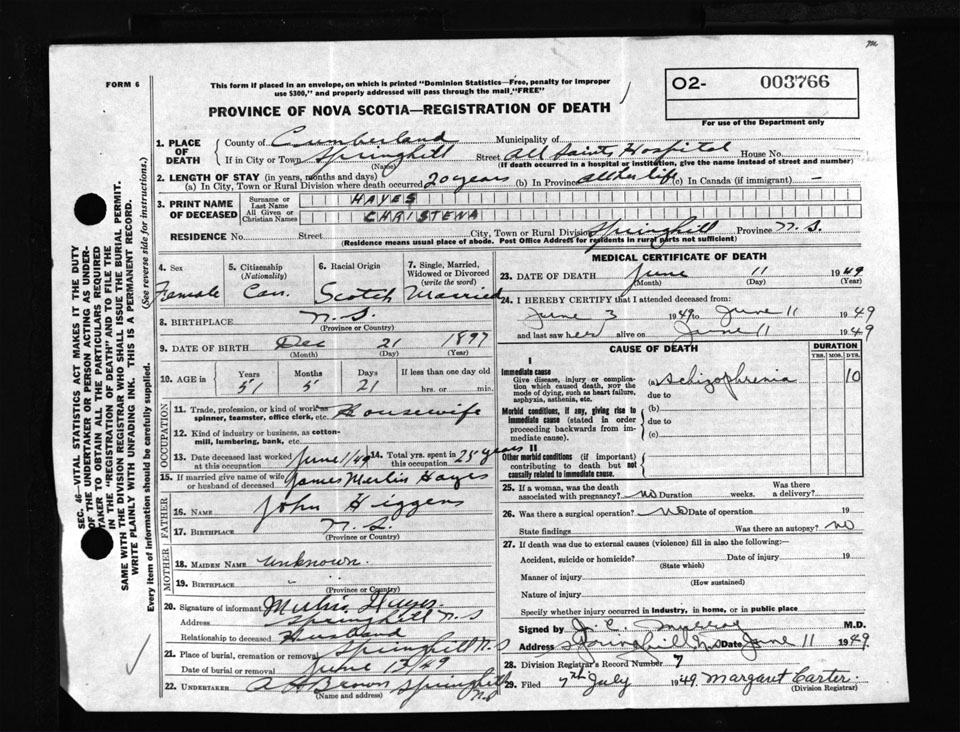 FORM 6
This form if placed in an envelope, on which is printed "Dominion Statistics—Free, penalty for improper
use $300," and properly addressed will pass through the mail, "FREE"
PROVINCE OF NOVA SCOTIA—REGISTRATION OF DEATH
O2- 003766
For use of the Department only
1. PLACE OF DEATH
County of Cumberland Municipality of
If in City or Town Springhill Street All Saints Hospital House No.
(Name) (If death occurred in a hospital or institution, give the name instead of street and number)
2. LENGTH OF STAY (in years, months and days)
(a) In City, Town or Rural Division where death occurred 20 years (b) In Province all her life (c) In Canada (if immigrant) —
3. PRINT NAME OF DECEASED
Surname or Last Name HAYES
All Given or Christian Names CHRISTENA
RESIDENCE No. Street City, Town or Rural Division Springhill Province N.S.
(Residence means usual place of abode. Post Office Address for residents in rural parts not sufficient)
4. Sex Female
5. Citizenship (Nationality) Can.
6. Racial Origin Scotch
7. Single, Married, Widowed or Divorced (write the word) Married
8. BIRTHPLACE N.S.
(Province or Country)
9. DATE OF BIRTH Dec 21 1897
(Month) (Day) (Year)
10. AGE in Years 51 Months 5 Days 21 If less than one day old hrs. or min.
OCCUPATION
11. Trade, profession, or kind of work as spinner, teamster, office clerk, etc. Housewife
12. Kind of industry or business, as cotton-mill, lumbering, bank, etc.
13. Date deceased last worked at this occupation June 1/49 14. Total yrs. spent in this occupation 25 years
15. If married give name of wife or husband of deceased James Merlin Hayes
FATHER
16. NAME John Higgens
17. BIRTHPLACE N.S.
(Province or Country)
MOTHER
18. MAIDEN NAME unknown.
19. BIRTHPLACE "
(Province or Country)
20. Signature of informant Merlin Hayes
Address Springhill N.S
Relationship to deceased Husband
21. Place of burial, cremation or removal Springhill N.S
Date of burial or removal June 13/49
22. UNDERTAKER Brown Springhill N.S
(Name and address)
MEDICAL CERTIFICATE OF DEATH
23. DATE OF DEATH June 11 1949
(Month) (Day) (Year)
24. I HEREBY CERTIFY that I attended deceased from:
June 3 1949 to June 11 1949
and last saw her alive on June 11 1949
CAUSE OF DEATH
DURATION
YRS. MOS. DYS.
I
Immediate cause
Give disease, injury or complication which caused death, NOT the mode of dying, such as heart failure, asphyxia, asthenia, etc.
(a) Schizophrenia 10
due to
Morbid conditions, if any, giving rise to immediate cause (stated in order proceeding backwards from immediate cause).
(b)
due to
(c)
II
Other morbid conditions (if important) contributing to death but not causally related to immediate cause.
25. If a woman, was the death associated with pregnancy? No Duration weeks. Was there a delivery?
26. Was there a surgical operation? No Date of operation 19
State findings Was there an autopsy? No
27. If death was due to external causes (violence) fill in also the following:—
Accident, suicide or homicide? Date of injury 19
(State which)
Manner of injury
(How sustained)
Nature of injury
Specify whether injury occurred in industry, in home, or in public place
Signed by M.D.
Address Springhill, N.S. Date June 11 1949
28. Division Registrar's Record Number 7
29. Filed 7th July 1949 Margaret Carter
(Division Registrar)
SEC. 46—VITAL STATISTICS ACT MAKES IT THE DUTY
OF THE UNDERTAKER OR PERSON ACTING AS UNDER-
TAKER TO OBTAIN ALL THE PARTICULARS REQUIRED
IN THE "REGISTRATION OF DEATH" AND TO FILE THE
SAME WITH THE DIVISION REGISTRAR WHO SHALL ISSUE THE BURIAL PERMIT.
WRITE PLAINLY WITH UNFADING INK. THIS IS A PERMANENT RECORD.
Every item of information should be carefully supplied. (See reverse side for instructions.)